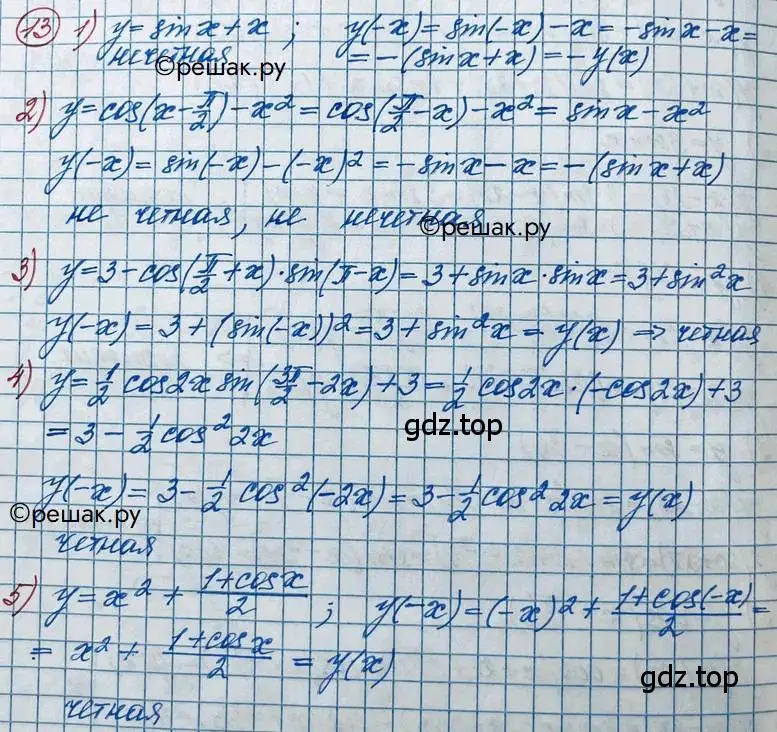 13 1) y = sin x + x ; y(-x) = sin(-x) - x = - sin x - x =
нечетная = - (sin x + x) = - y(x)
©решак.ру
2) y = cos(x - π/2) - x² = cos(π/2 - x) - x² = sin x - x²
y(-x) = sin(-x) - (-x)² = - sin x - x = - (sin x + x)
не четная, не нечетная
©решак.ру
3) y = 3 - cos(π/2 + x) · sin(π - x) = 3 + sin x · sin x = 3 + sin² x
y(-x) = 3 + (sin(-x))² = 3 + sin² x = y(x) ⇒ четная
4) y = 1/2 cos 2x sin(3π/2 - 2x) + 3 = 1/2 cos 2x · (- cos 2x) + 3
= 3 - 1/2 cos² 2x
gdz.top
y(-x) = 3 - 1/2 cos² (-2x) = 3 - 1/2 cos² 2x = y(x)
©решак.ру
четная
5) y = x² + (1 + cos x)/2 ; y(-x) = (-x)² + (1 + cos(-x))/2 =
= x² + (1 + cos x)/2 = y(x)
gdz.top
четная